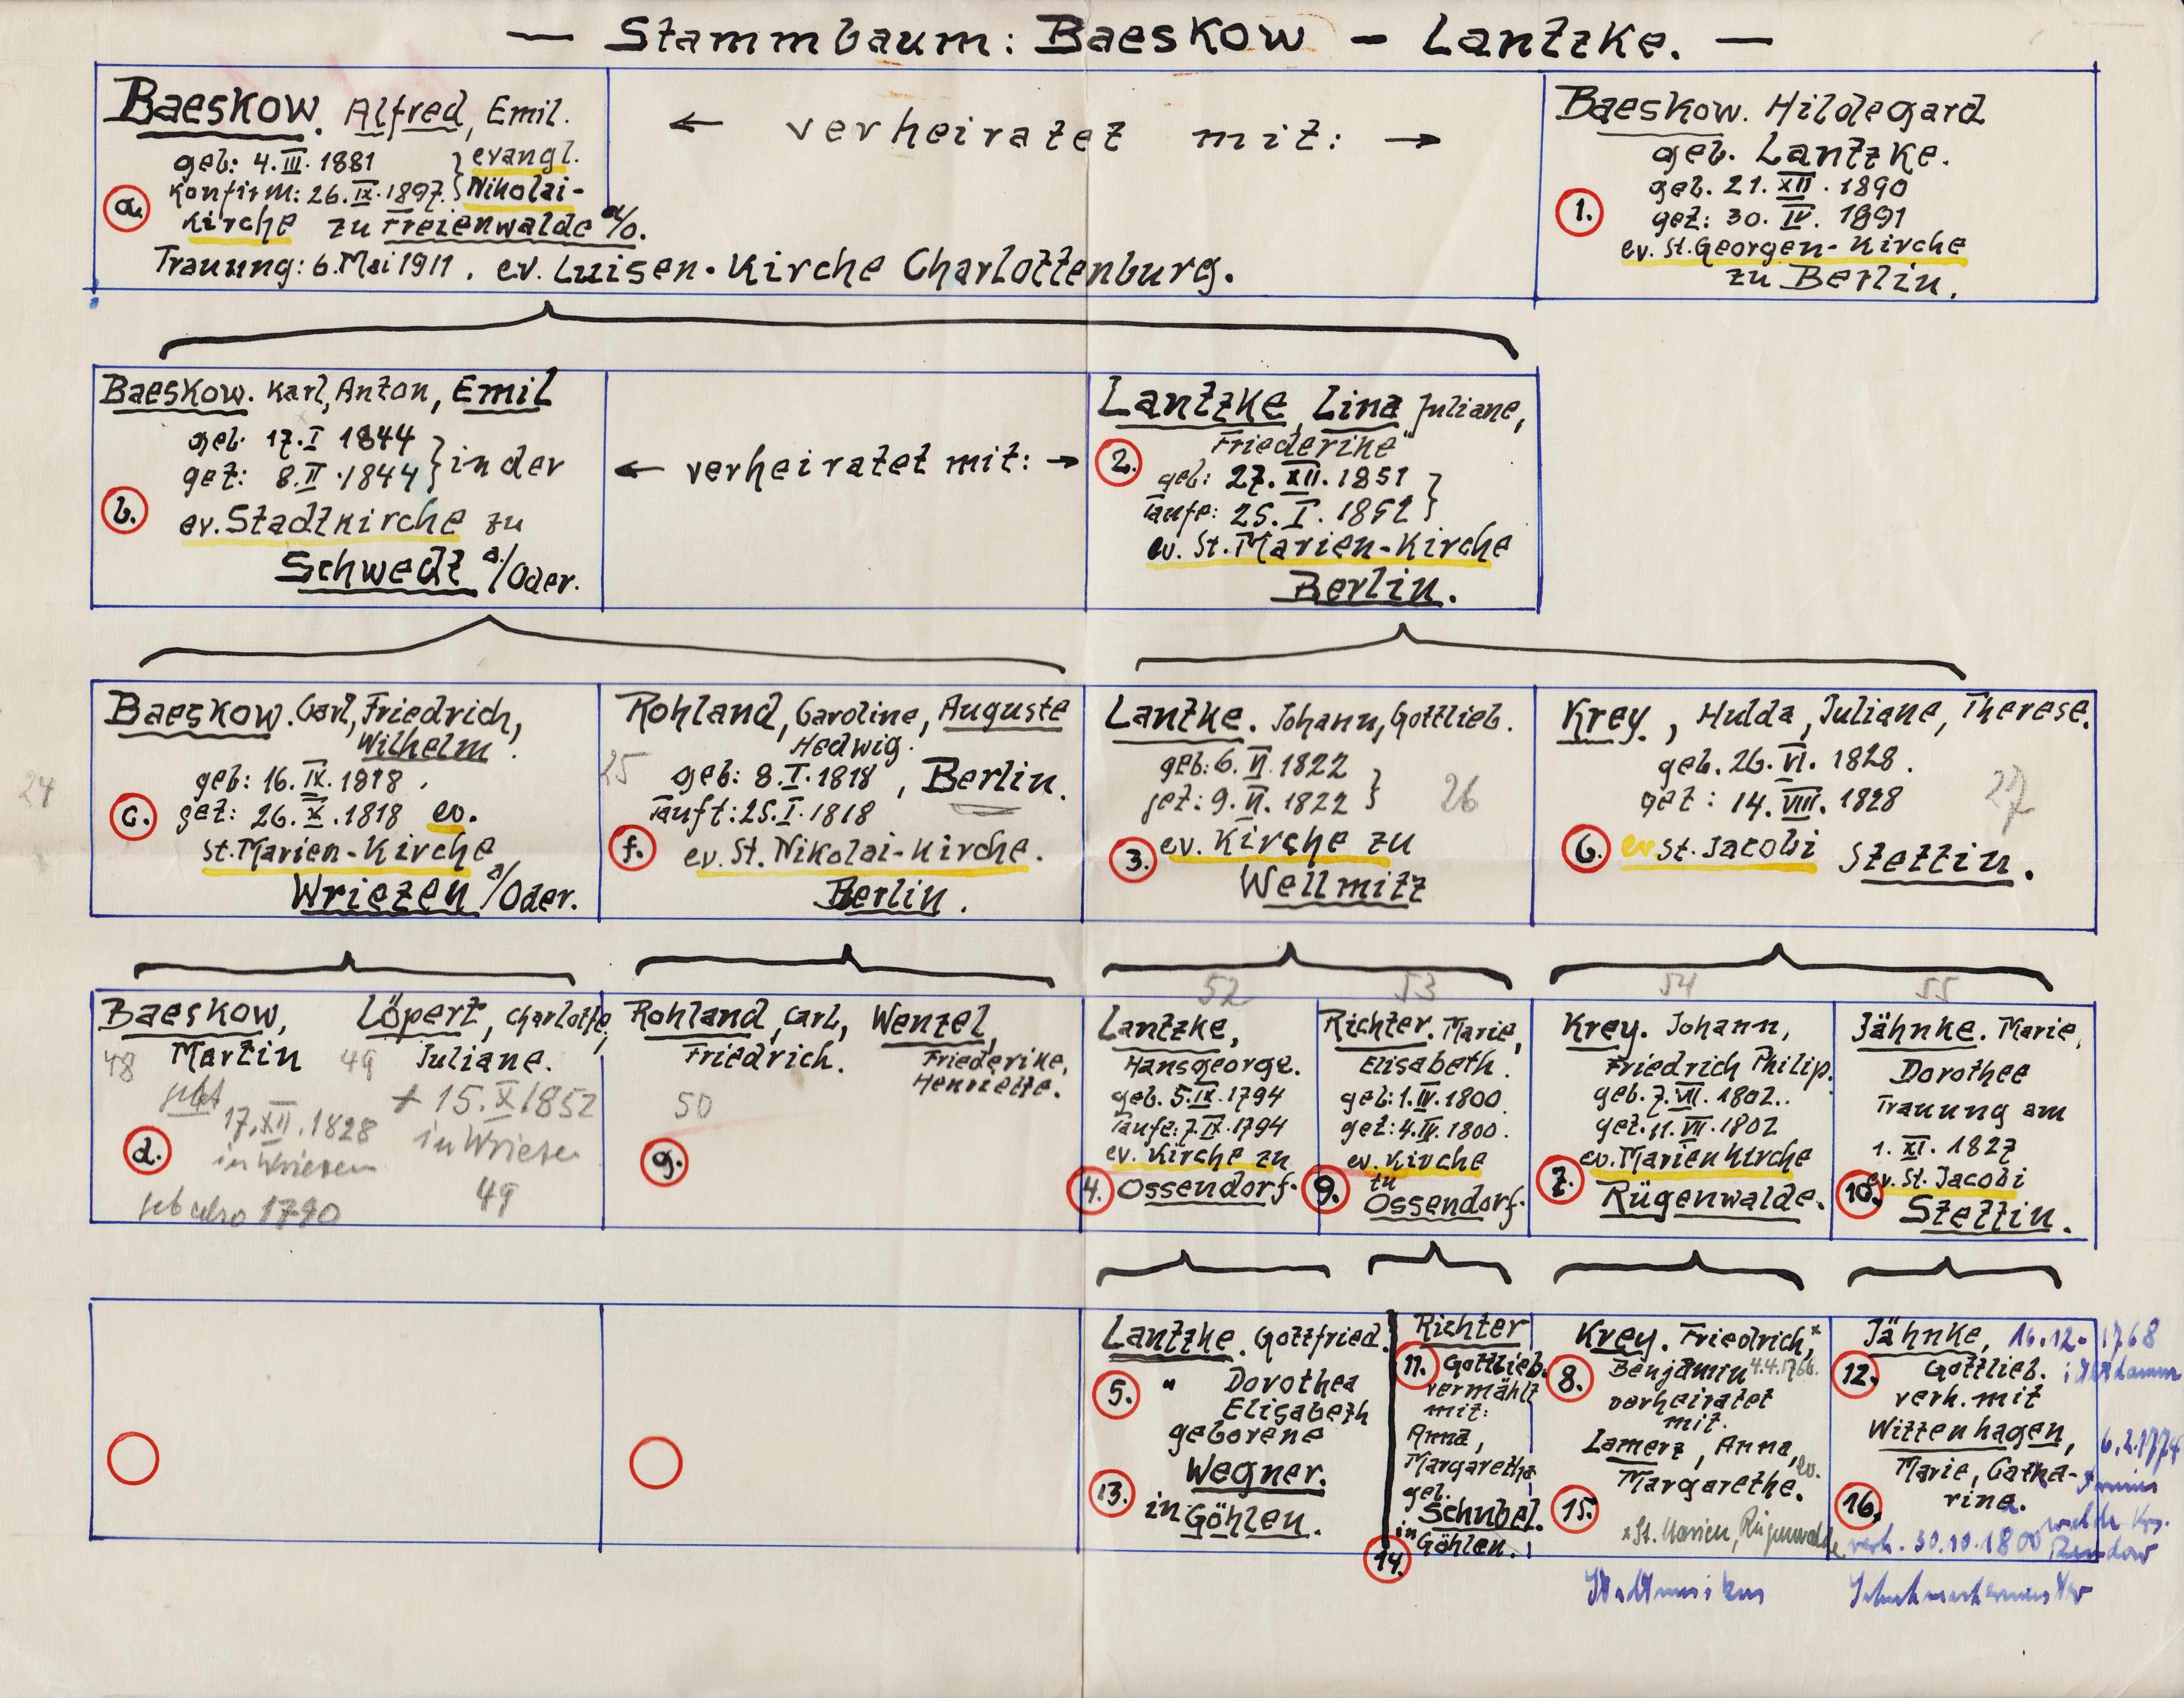 — Stammbaum: Baeskow – Lantzke. —
Baeskow. Alfred, Emil.
geb: 4. III. 1881 } evangl.
Konfirm: 26. IX. 1897. } Nikolai-
a.
Kirche zu Freienwalde a/O.
Trauung: 6. Mai 1911. ev. Luisen-Kirche Charlottenburg.
← verheiratet mit: →
Baeskow. Hildegard
geb. Lantzke.
geb. 21. XII. 1890
get: 30. IV. 1891
1.
ev. St. Georgen-Kirche
zu Berlin.
Baeskow. Karl, Anton, Emil
geb. 17. I 1844
get: 8. II. 1844 } in der
b.
ev. Stadtkirche zu
Schwedt a/Oder.
← verheiratet mit: →
Lantzke Lina Juliane,
Friederike"
2.
geb: 27. XII. 1851 }
Taufe: 25. I. 1852 }
ev. St. Marien-Kirche
Berlin.
Baeskow. Carl, Friedrich,
Wilhelm.
geb: 16. IX. 1818.
24
c.
get: 26. X. 1818 ev.
St. Marien-Kirche
Wriezen a/Oder.
Rohland, Caroline, Auguste
Hedwig.
25
geb: 8. I. 1818, Berlin.
Tauft: 25. I. 1818
f.
ev. St. Nikolai-Kirche.
Berlin.
Lantzke. Johann, Gottlieb.
geb: 6. VI. 1822 }
get: 9. VI. 1822 }
26
3.
ev. Kirche zu
Wellmitz
Krey., Hulda, Juliane, Therese.
geb. 26. VI. 1828.
get: 14. VIII. 1828
27
6.
ev St. Jacobi Stettin.
Baeskow,
Martin
48
gest
17. XII. 1828
in Wriezen
d.
geb also 1790
Löpert, Charlotte,
Juliane.
49
+ 15. X 1852
in Wriezen
49
Rohland, Carl,
Friedrich.
50
g.
Wenzel,
Friederike,
Henriette.
52
Lantzke,
Hansgeorge.
geb. 5. IX. 1794
Taufe: 7. IX. 1794
ev. Kirche zu
4. Ossendorf.
53
Richter. Marie,
Elisabeth.
geb: 1. IV. 1800.
get: 4. IV. 1800.
ev. Kirche
zu
9. Ossendorf.
54
Krey. Johann,
Friedrich Philip.
geb. 7. VII. 1802..
get. 11. VII. 1802
ev. Marienkirche
7. Rügenwalde.
55
Jähnke. Marie,
Dorothee
Trauung am
1. XI. 1827
ev. St. Jacobi
10. Stettin.
Lantzke. Gottfried.
5.
" Dorothea
Elisabeth
geborene
Wegner.
13.
in Göhlen.
Richter
11. Gottlieb.
vermählt
mit:
Anna,
Margaretha
geb.
Schnbel.
in
Göhlen.
14.
Krey. Friedrich,*
8. Benjamin 4.4.1766.
verheiratet
mit.
Lamerz, Anna, ev.
Margarethe.
15.
*St. Marien, Rügenwalde
Stadtmusikus
Jähnke, 16.12. 1768
12. Gottlieb.
verh. mit
Wittenhagen, 6.2.1774
Marie, Catha-
rine.
16.
verh. 30.10.1800
Schuhmachermeister